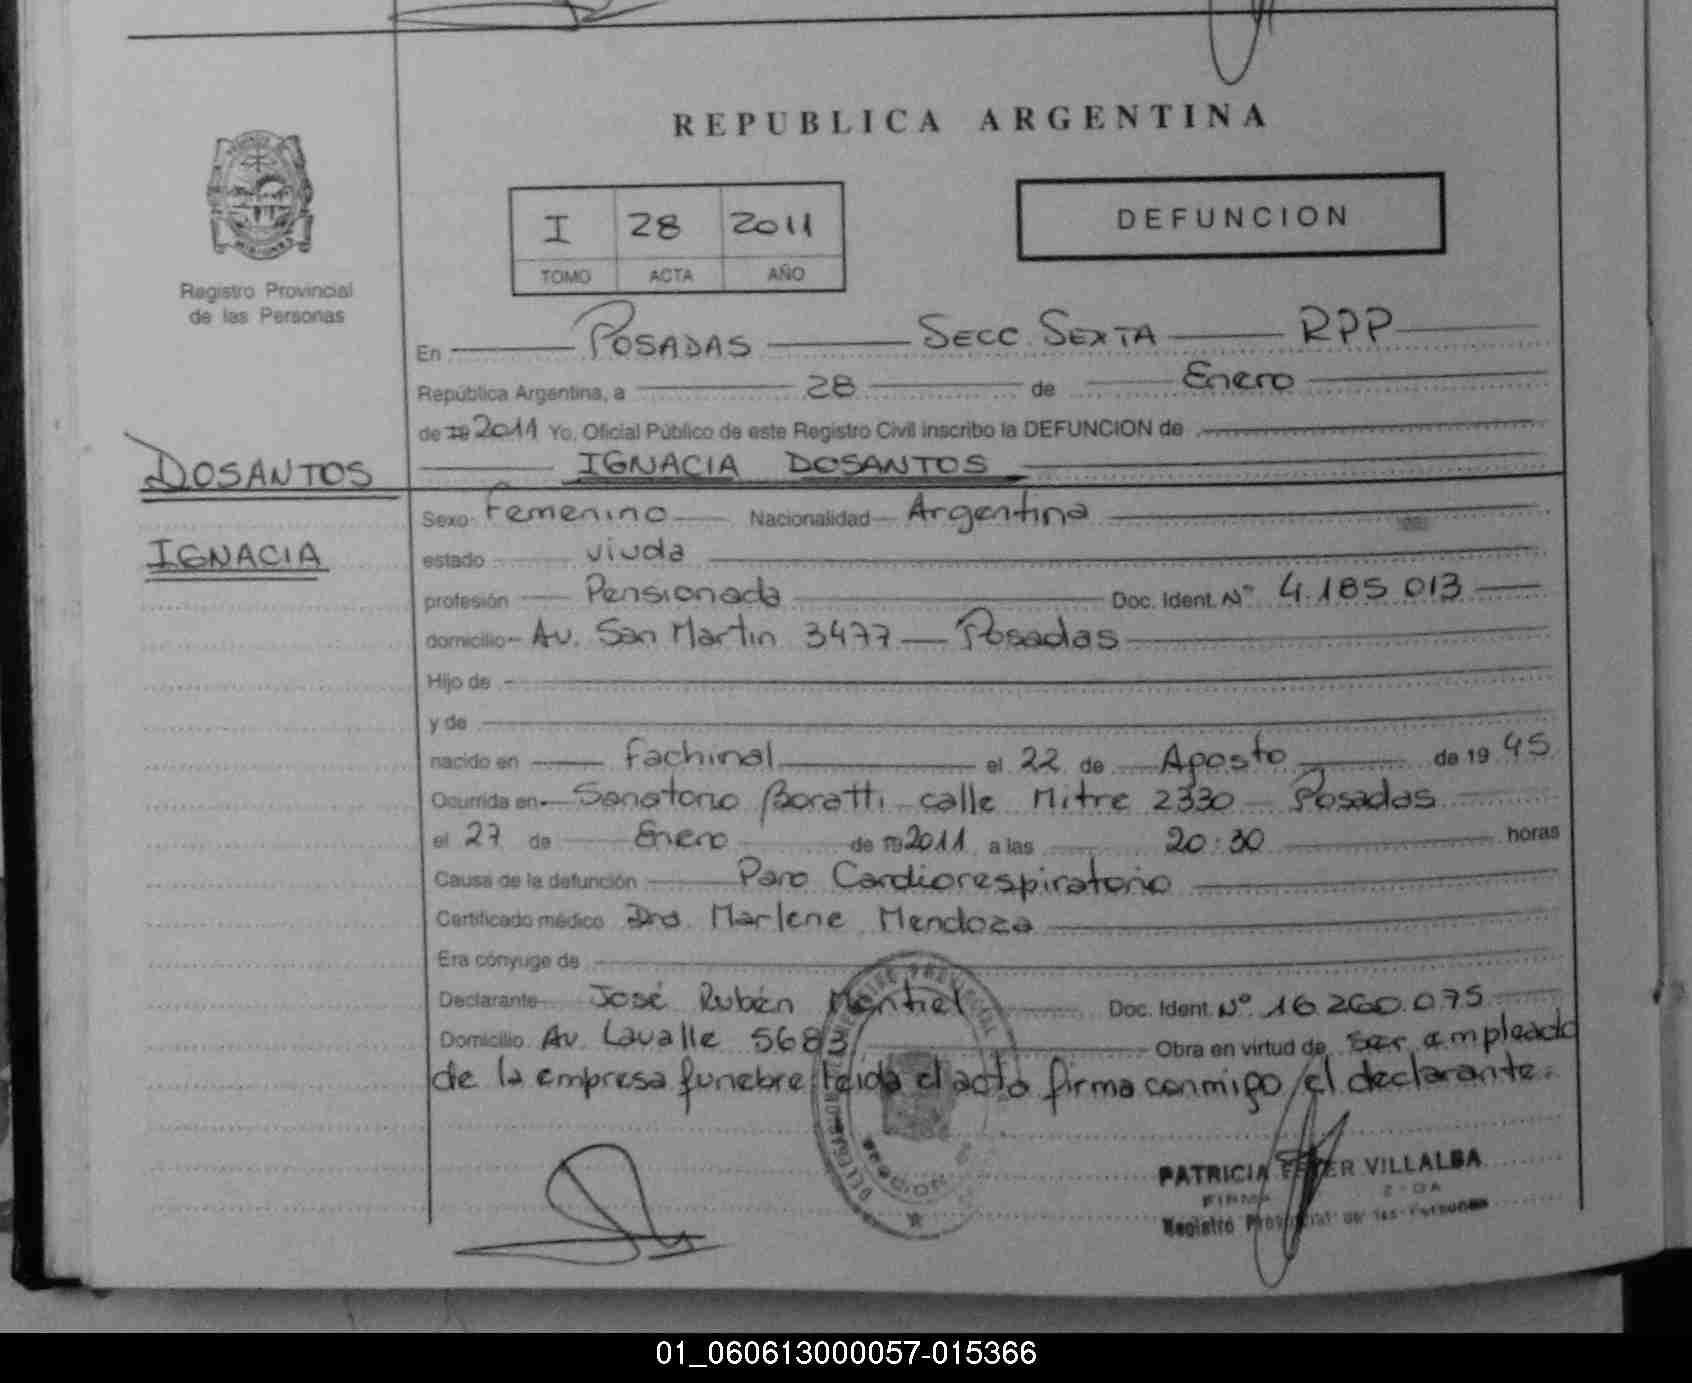 REPUBLICA ARGENTINA
I 28 2011
TOMO ACTA AÑO
DEFUNCION
Registro Provincial
de las Personas
En POSADAS SECC. SEXTA RPP
República Argentina, a 28 de Enero
de 19 2011 Yo, Oficial Público de este Registro Civil inscribo la DEFUNCION de
IGNACIA DOSANTOS
DOSANTOS
IGNACIA
Sexo Femenino Nacionalidad Argentina
estado viuda
profesión Pensionada Doc. Ident. Nº 4.185.013
domicilio Av. San Martin 3477 Posadas
Hijo de
y de
nacido en Fachinal el 22 de Agosto de 19 45
Ocurrida en Sanatorio Boratti calle Mitre 2330 Posadas
el 27 de Enero de 19 2011 a las 20:30 horas
Causa de la defunción Paro Cardiorespiratorio
Certificado médico Dra. Marlene Mendoza
Era cónyuge de
Declarante José Rubén Montiel Doc. Ident. Nº 16.260.075
Domicilio Av. Lavalle 5683 Obra en virtud de ser empleado
de la empresa funebre leida el acta firma conmigo el declarante.
PATRICIA ESTER VILLALBA
FIRMA
Registro Provincial de las Personas
01_060613000057-015366